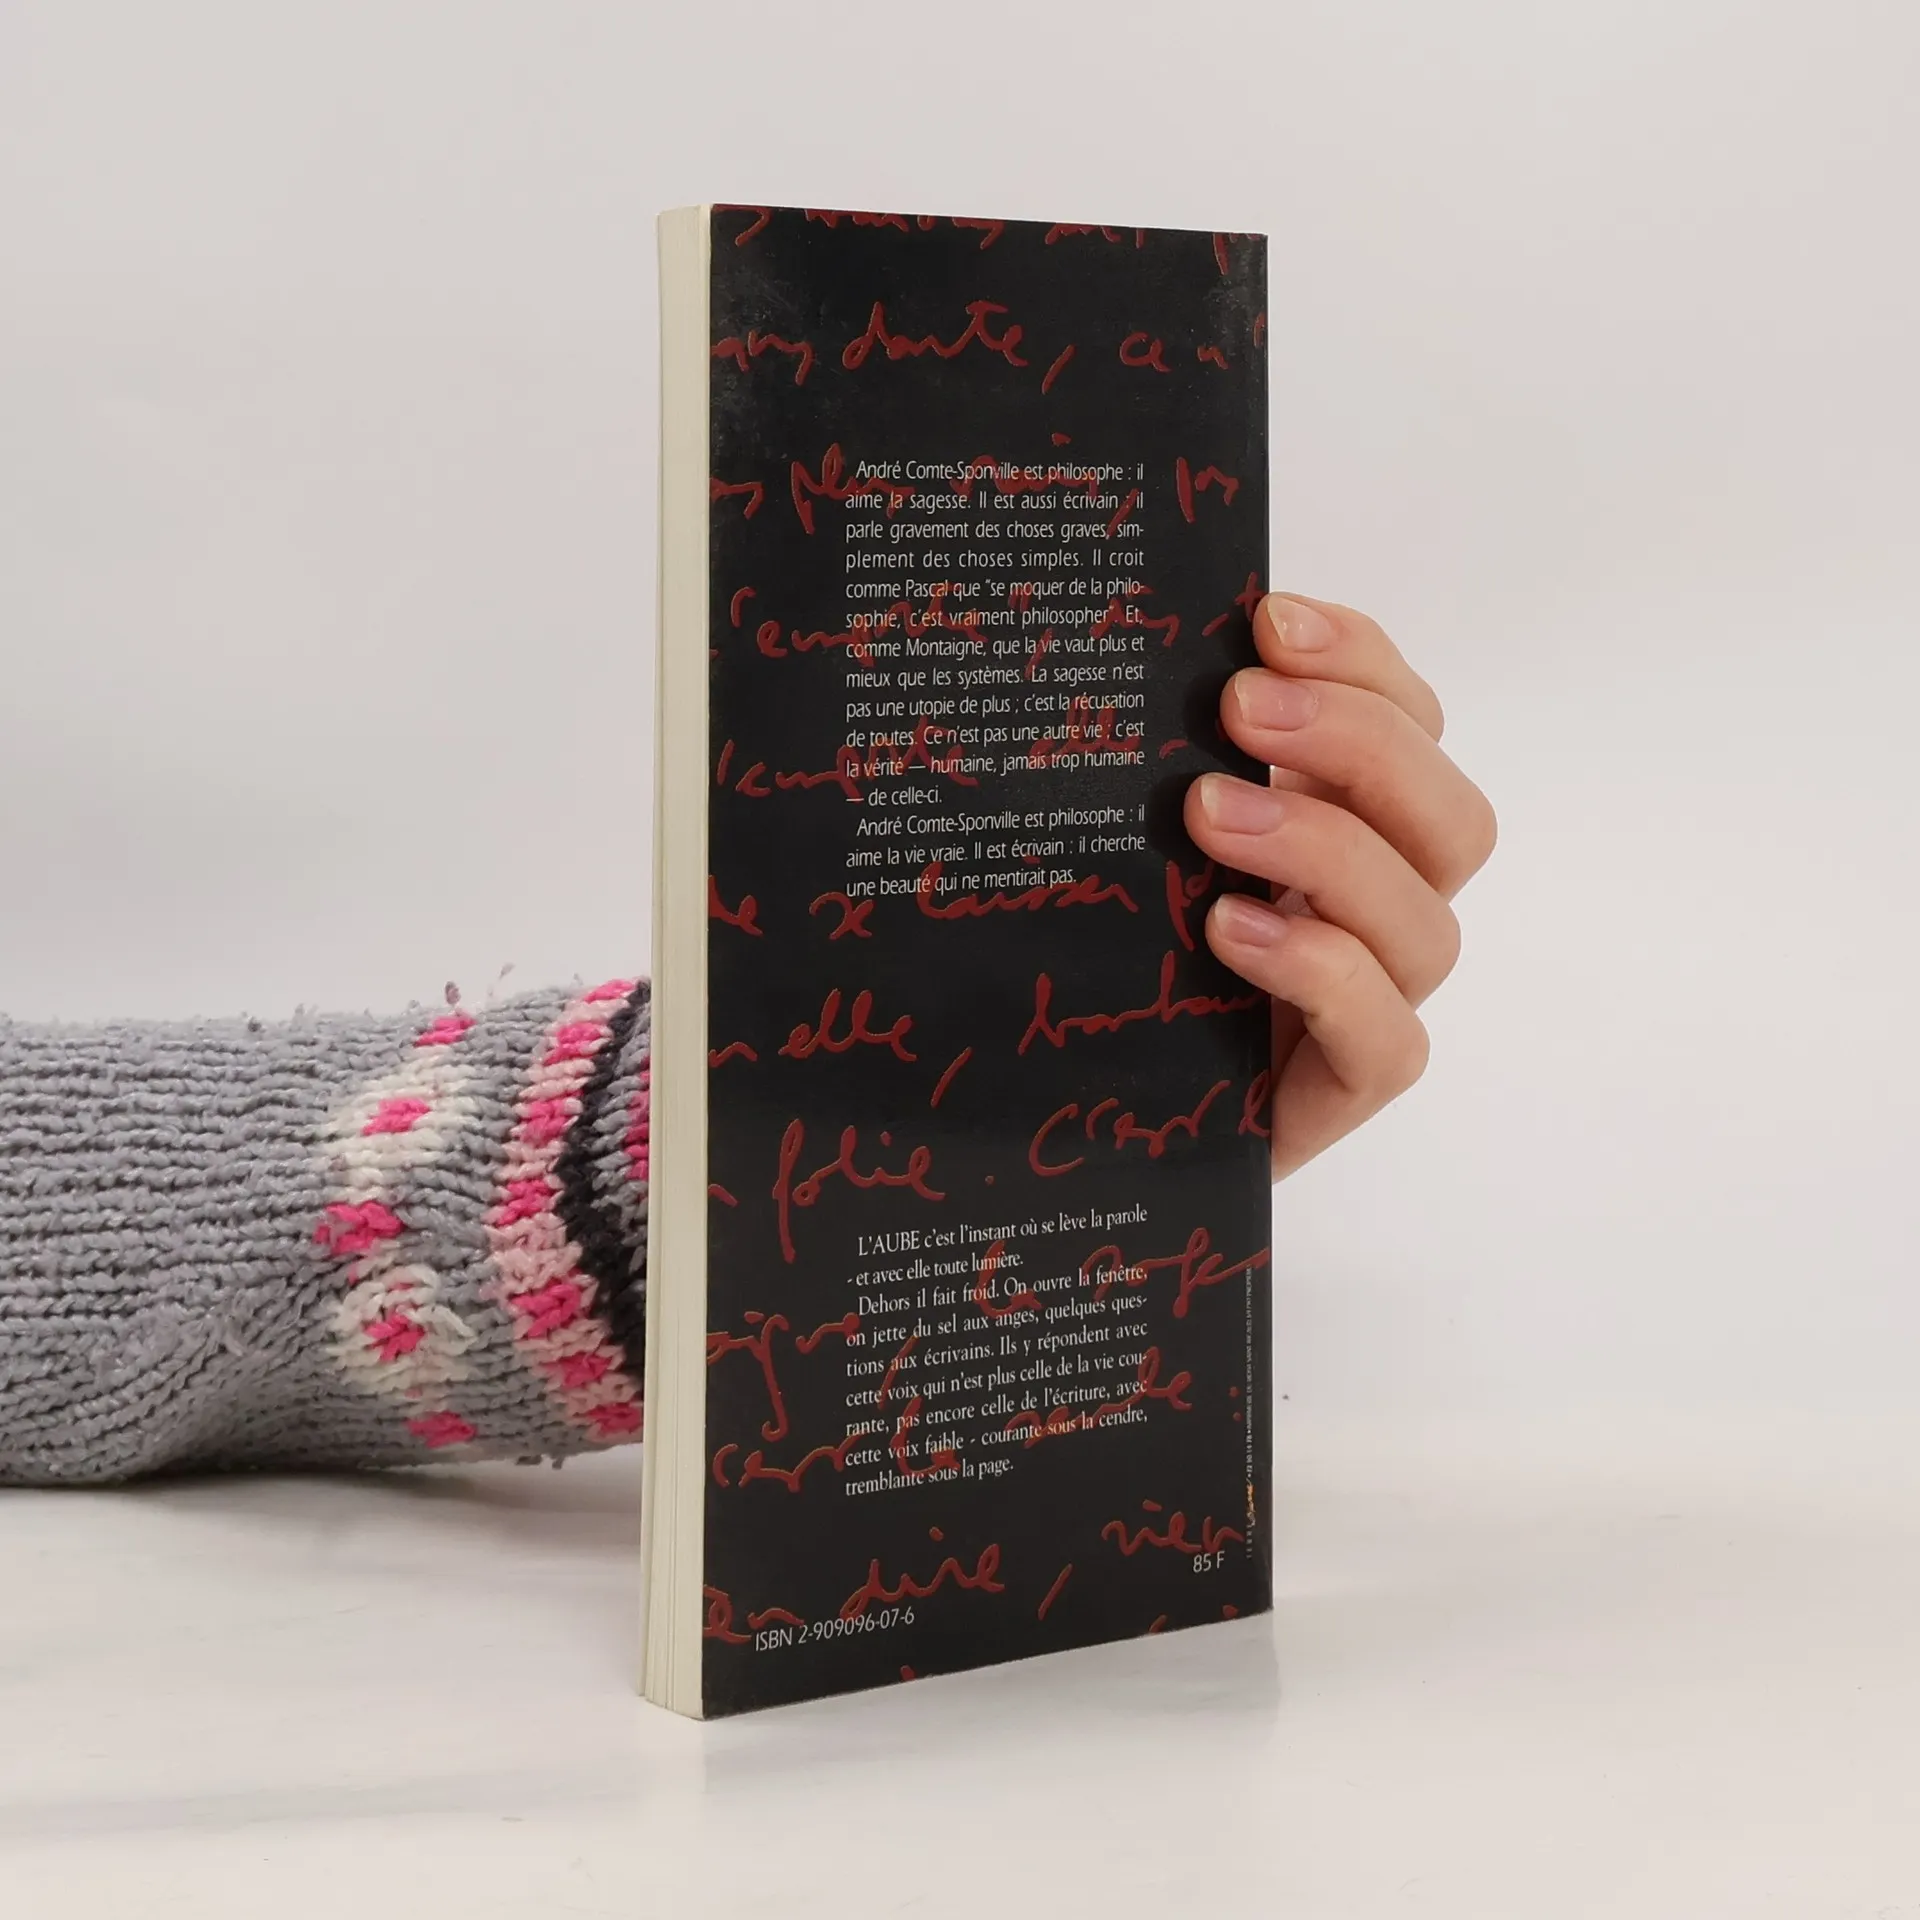 dante, ce n'
André Comte-Sponville est philosophe : il
aime la sagesse. Il est aussi écrivain : il
parle gravement des choses graves, sim-
plement des choses simples. Il croit
comme Pascal que "se moquer de la philo-
sophie, c'est vraiment philosopher". Et,
comme Montaigne, que la vie vaut plus et
mieux que les systèmes. La sagesse n'est
pas une utopie de plus ; c'est la récusation
de toutes. Ce n'est pas une autre vie ; c'est
la vérité — humaine, jamais trop humaine
— de celle-ci.
André Comte-Sponville est philosophe : il
aime la vie vraie. Il est écrivain : il cherche
une beauté qui ne mentirait pas.
se laisser
elle,
folie. C'est l
L'AUBE c'est l'instant où se lève la parole
- et avec elle toute lumière.
Dehors il fait froid. On ouvre la fenêtre,
on jette du sel aux anges, quelques ques-
tions aux écrivains. Ils y répondent avec
cette voix qui n'est plus celle de la vie cou-
rante, pas encore celle de l'écriture, avec
cette voix faible - courante sous la cendre,
tremblante sous la page.
en dire, rien
85 F
ISBN 2-909096-07-6